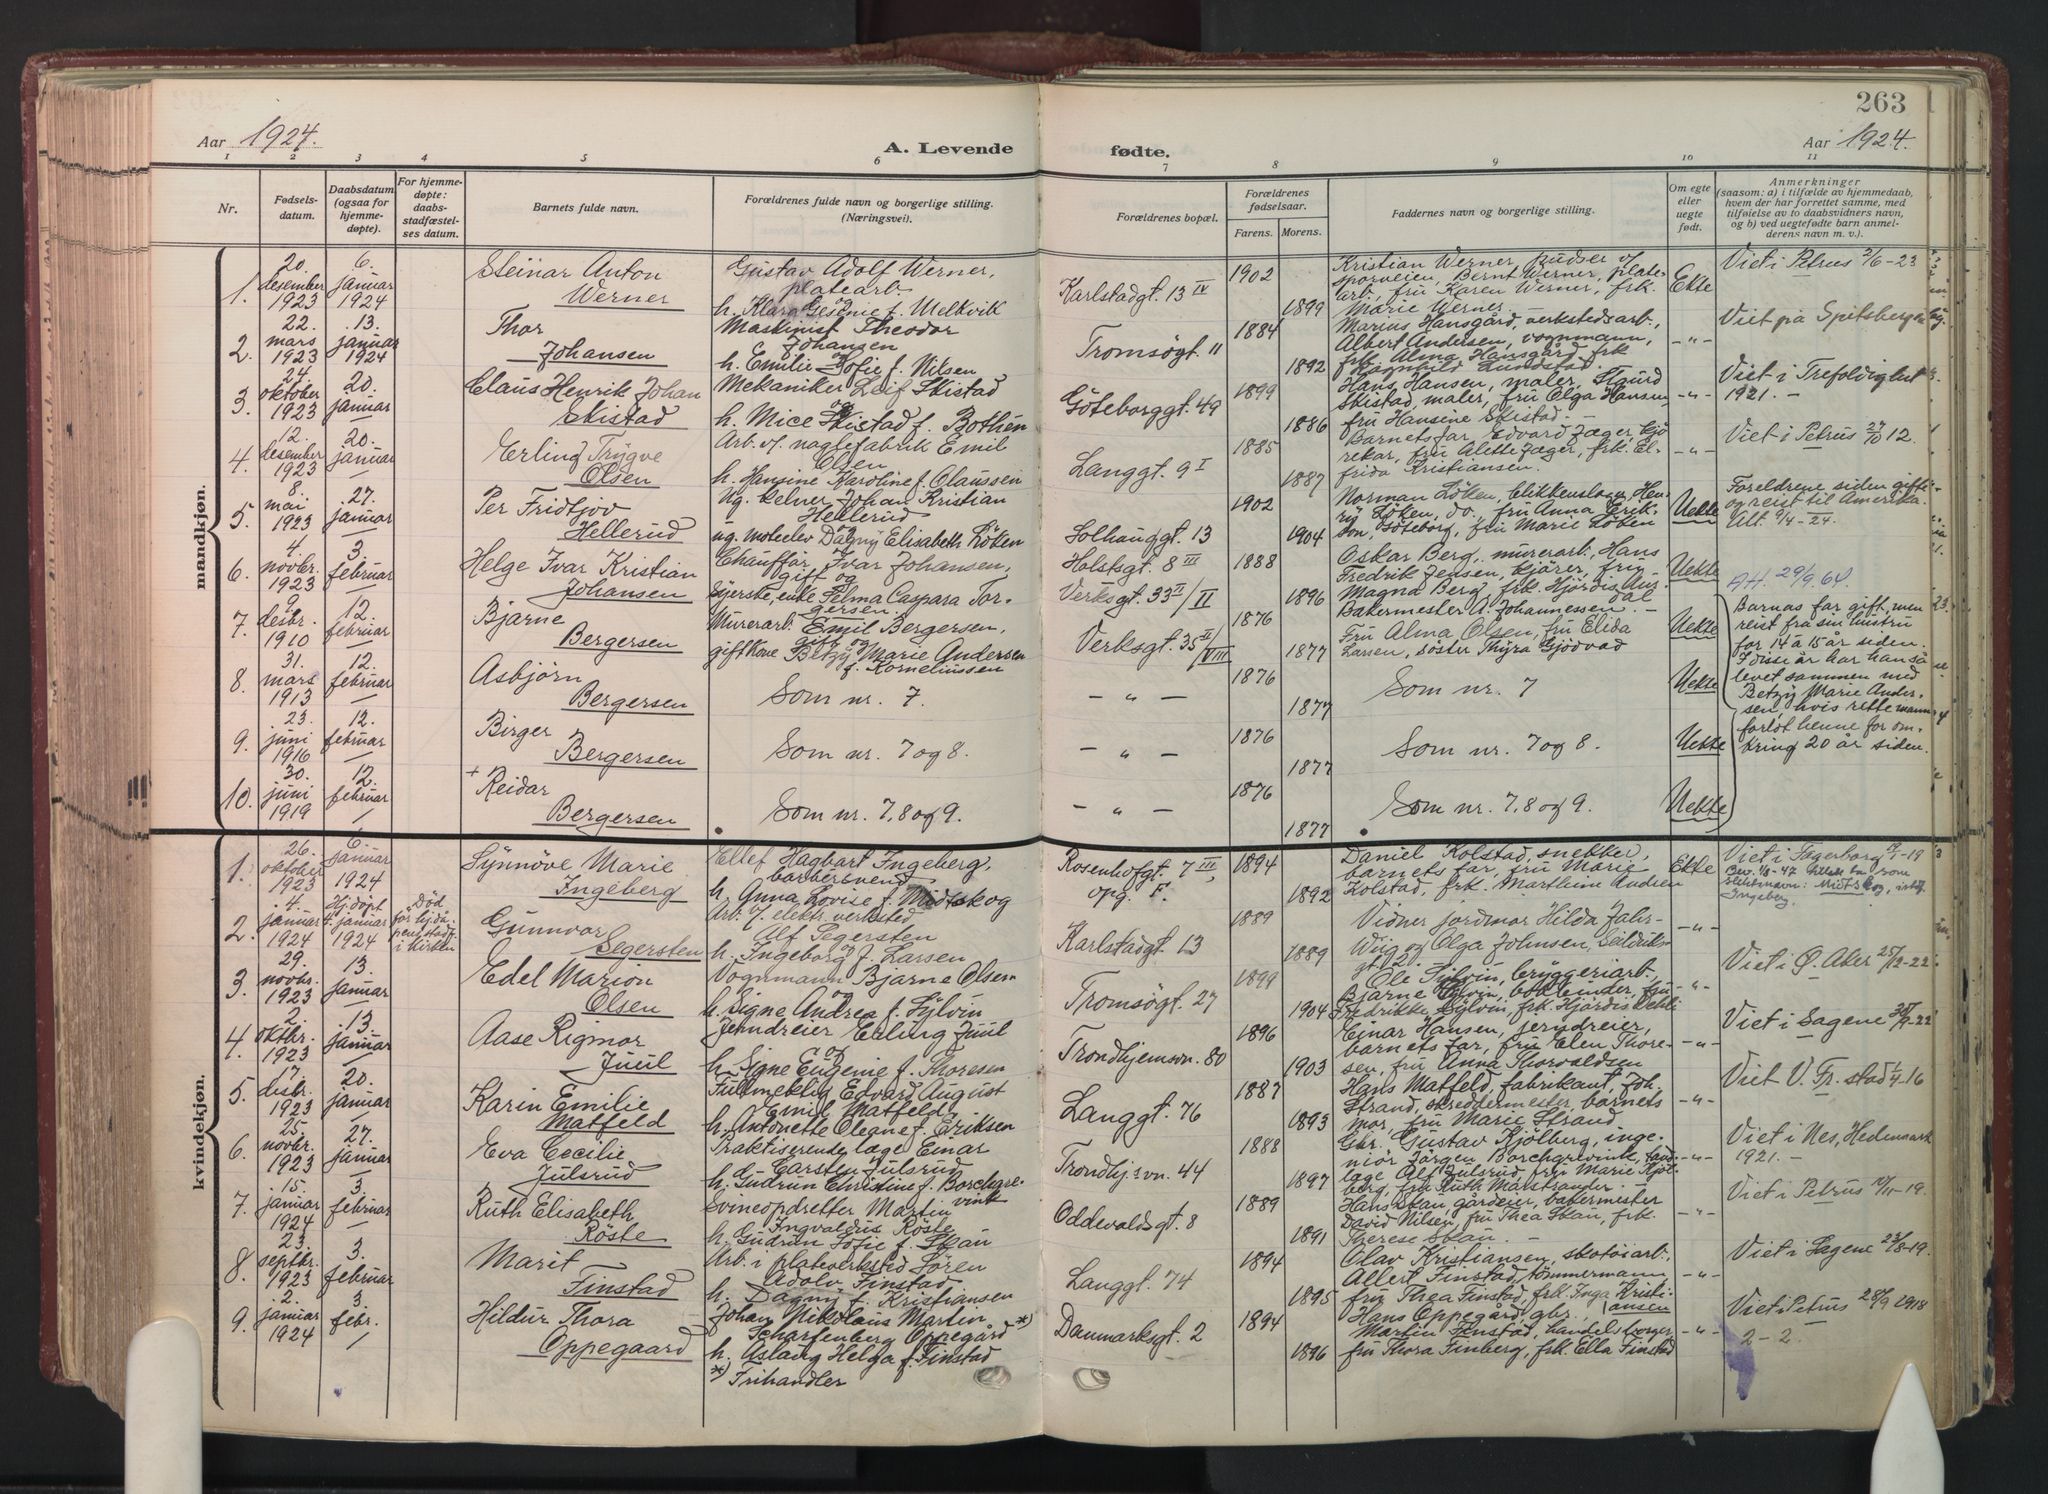 263
Aar 1924.
A. Levende
fødte.
Aar 1924.
1 2 3 4 5 6 7 8 9 10 11
Nr.
Fødsels-
datum.
Daabsdatum
(ogsaa for
hjemme-
døpte).
For hjemme-
døpte:
daabs-
stadfæstel-
ses datum.
Barnets fulde navn.
Forældrenes fulde navn og borgerlige stilling.
(Næringsvei).
Forældrenes bopæl.
Forældrenes
fødselsaar.
Farens. Morens.
Faddernes navn og borgerlige stilling.
Om egte
eller
uegte
født.
Anmerkninger
(saasom: a) i tilfælde av hjemmedaab,
hvem der har forrettet samme, med
tilføielse av to daabsvidners navn,
og b) ved uegtefødte barn anmel-
derens navn m. v.).
mandkjøn.
1.
20.
desember
1923
6.
januar
1924
Steinar Anton
Werner
Gustav Adolf Werner,
platearb.
og
h. Klara Gesenie f. Melkvik
Karlstadgt. 13 IV
1902
1899
Kristian Werner, budser v/
sporveien, Bernt Werner, plate-
arb., fru Karen Werner, frk.
Marie Werner.
Ekte
Viet i Petrus 2/6-23
2.
22.
mars
1923
13.
januar
1924
Thor
Johansen
Maskinist Theodor
Johansen
og
h. Emilie Sofie f. Nilsen
Tromsøgt. 11
1884
1892
Marius Hansgård, verkstedsarb.,
Albert Andersen, vognmann,
frk. Alma Hansgård, frk
Ragnhild Lundstad.
-"-
Viet på Spitsbergen
3.
24.
oktober
1923
20.
januar
Claus Henrik Johan
Skistad
Mekaniker Leif Skistad
og
h. Mice Skistad f. Bothen
Göteborggt. 49
1899
1886
Hans Hansen, maler, Sigurd
Skistad, maler, fru Olga Hansen,
fru Hansine Skistad.
-"-
Viet i Trefoldighet
1921. -
4.
12.
desember
1923
20.
januar
Erling Trygve
Olsen
Arb. v. naglefabrik Emil
Olsen
h. Hansine Karoline f. Olaussen
Langgt. 9 I
1885
1887
Barnets far, Edvard Jæger, kjö
rekar, fru Alette Jæger, frk. El-
frida Kristiansen.
-"-
Viet i Petrus 27/10 12.
5.
8.
mai
1923
27.
januar
Per Fridtjov
Hellerud
Ug. kelner Johan Kristian
Hellerud
ug. motelev Dagny Elisabeth Löken
Solhauggt. 13
1902
1904
Norman Löken, blikkenslager, Hen-
ry Löken, do., fru Anna Erik-
son, Göteborg, fru Marie Löken
Uekte
Foreldrene siden gifte
og reist til Amerika.
Alt. 9/4-24.
6.
4.
novbr.
1923
3.
februar
Helge Ivar Kristian
Johansen
Chauffør Ivar Johansen,
gift og
Syerske, enke Selma Caspara Tor-
gersen.
Holstsgt. 8 III
Verksgt. 33 II/II
1888
1896
Oskar Berg, murerarb., Hans
Fredrik Jensen, kjører, fru
Magna Berg, frk. Hjördis Aus
dal
Bakermester A. Johannessen. -
Uekte
AH. 29/9.64.
7.
9.
desbr.
1910
12.
februar
Bjarne
Bergersen
Murerarb. Emil Bergersen,
gift og
gift kone Betzy Marie Andersen
f. Korneliussen
Verksgt. 35 II/VIII
1876
1877
Fru Alma Olsen, fru Elida
Larsen, söster Thyra Gjödvad
Uekte
Barnas far gift, men
reist fra sin hustru
for 14 à 15 år siden.
I disse år har han så
levet sammen med
Betzy Marie Ander-
sen, hvis rette mann
forlot henne for om-
kring 20 år siden.
8.
31.
mars
1913
12.
februar
Asbjörn
Bergersen
Som nr. 7.
- " -
1876
1877
Som nr. 7
Uekte
9.
23.
juni
1916
12.
februar
Birger
Bergersen
Som nr. 7 og 8.
- " -
1876
1877
Som nr. 7 og 8.
Uekte
10.
30.
juni
1919
12.
februar
+ Reidar
Bergersen
Som nr. 7, 8 og 9.
- " -
1876
1877
Som nr. 7, 8 og 9.
Uekte
kvindekjøn.
1.
26.
oktober
1923
6.
januar
1924
Synnöve Marie
Ingeberg
Ellef Hagbart Ingeberg,
barbersvend
h. Anna Lovise f. Midtskog
Rosenhofgt. 7 III,
opg. F.
1894
1892
Daniel Kolstad, snekker,
barnets far, fru Marie
Kolstad, frk. Marthine Andsen
Ekte
Viet i Fagerborg 19/1-19
Bev. 1/8-47 tillatt ba som
slektsnavn: Midtskog, istf.
Ingeberg.
2.
4.
januar
1924
Hj.döpt
4. januar
1924
Död
för hj.då-
pen stadf.
i kirken
Gunnvor
Segersten
Arb. v/ elektr. verksted
Alf Segersten
og
h. Ingeborg f. Larsen
Karlstadgt. 13
1889
1889
Vidner jordmor Hilda Jahr-
Wiig og Olga Johnsen, Seilduks-
gt 12.
-"-
3.
29.
novbr.
1923
13.
januar
Edel Marion
Olsen
Vognmann Bjarne Olsen
og
h. Signe Andrea f. Sylvin
Tromsøgt. 27
1899
1904
Ole Sylvin, bryggeriarb.,
Bjarne Sylvin, bokbinder, fru
Fredrikke Sylvin, frk. Hjördis Dehli
-"-
Viet i Ø. Aker 25/12-22
4.
2.
oktbr.
1923
13.
januar
Aase Rigmor
Juul
Jerndreier Erling Juul
og
h. Signe Eugenie f. Thoresen
Trondhjemsvn. 80
1896
1903
Einar Hansen, jerndreier,
barnets far, fru Elen Thore-
sen, fru Anna Thorvaldsen
-"-
Viet i Sagene 30/9-22
5.
17.
desbr.
1923
20.
januar
Karin Emilie
Matfeld
Fullmektig Edvard August
Emil Matfeld
h. Antonette Oleane f. Eriksen
Langgt. 76
1887
1893
Hans Matfeld, fabrikant, Joh.
Strand, skreddermester, barnets
mor, fru Marie Strand
-"-
Viet V. Fr.stad 1/4-16
6.
25.
novbr.
1923
27.
januar
Eva Cecilie
Julsrud
Praktiserende læge Einar
Carsten Julsrud
h. Gudrun Christine f. Borchgre-
vink
Trondhj.svn. 44
1888
1897
Gbr. Gustav Kjölberg, inge-
niör Jörgen Borchgrevink, tand-
læge Alf Julsrud, fru Marie Kjöl-
berg, fru Ruth Marstrander. -
-"-
Viet i Nes, Hedemark
1921. -
7.
15.
januar
1924
3.
februar
Ruth Elisabeth
Röste
Svineopdretter Martin
Ingvaldus Röste
h. Gudrun Sofie f. Skau
Oddevaldsgt. 8
1889
1891
Hans Skau, gårdeier, bakermester
David Nilsen, fru Thea Skau, frk.
Therese Skau. -
-"-
Viet i Petrus 10/11-19.
8.
23.
septbr.
1923
3.
februar
Marit
Finstad
Arb. i plateverksted Sören
Adolv Finstad
h. Dagny f. Kristiansen
Langgt. 74
1894
1895
Olav Kristiansen, skotöiarb.,
Allert Finstad, tömmermann
fru Thea Finstad, frk. Inga Kristi-
ansen
-"-
Viet i Sagene 23/8-19.
9.
2.
januar
1924
3.
febr.
Hildur Thora
Oppegaard
Johan Nikolaus Martin
Scharfenberg Oppegård *)
h. Aslaug Helga f. Finstad
*) Frihandler
Danmarksgt. 2
1894
1896
Hans Oppegård, gbr.
Martin Finstad, handelsborger,
fru Thora Finberg, frk. Ella Finstad
-"-
Viet i Petrus 28/9 1918
2-2.